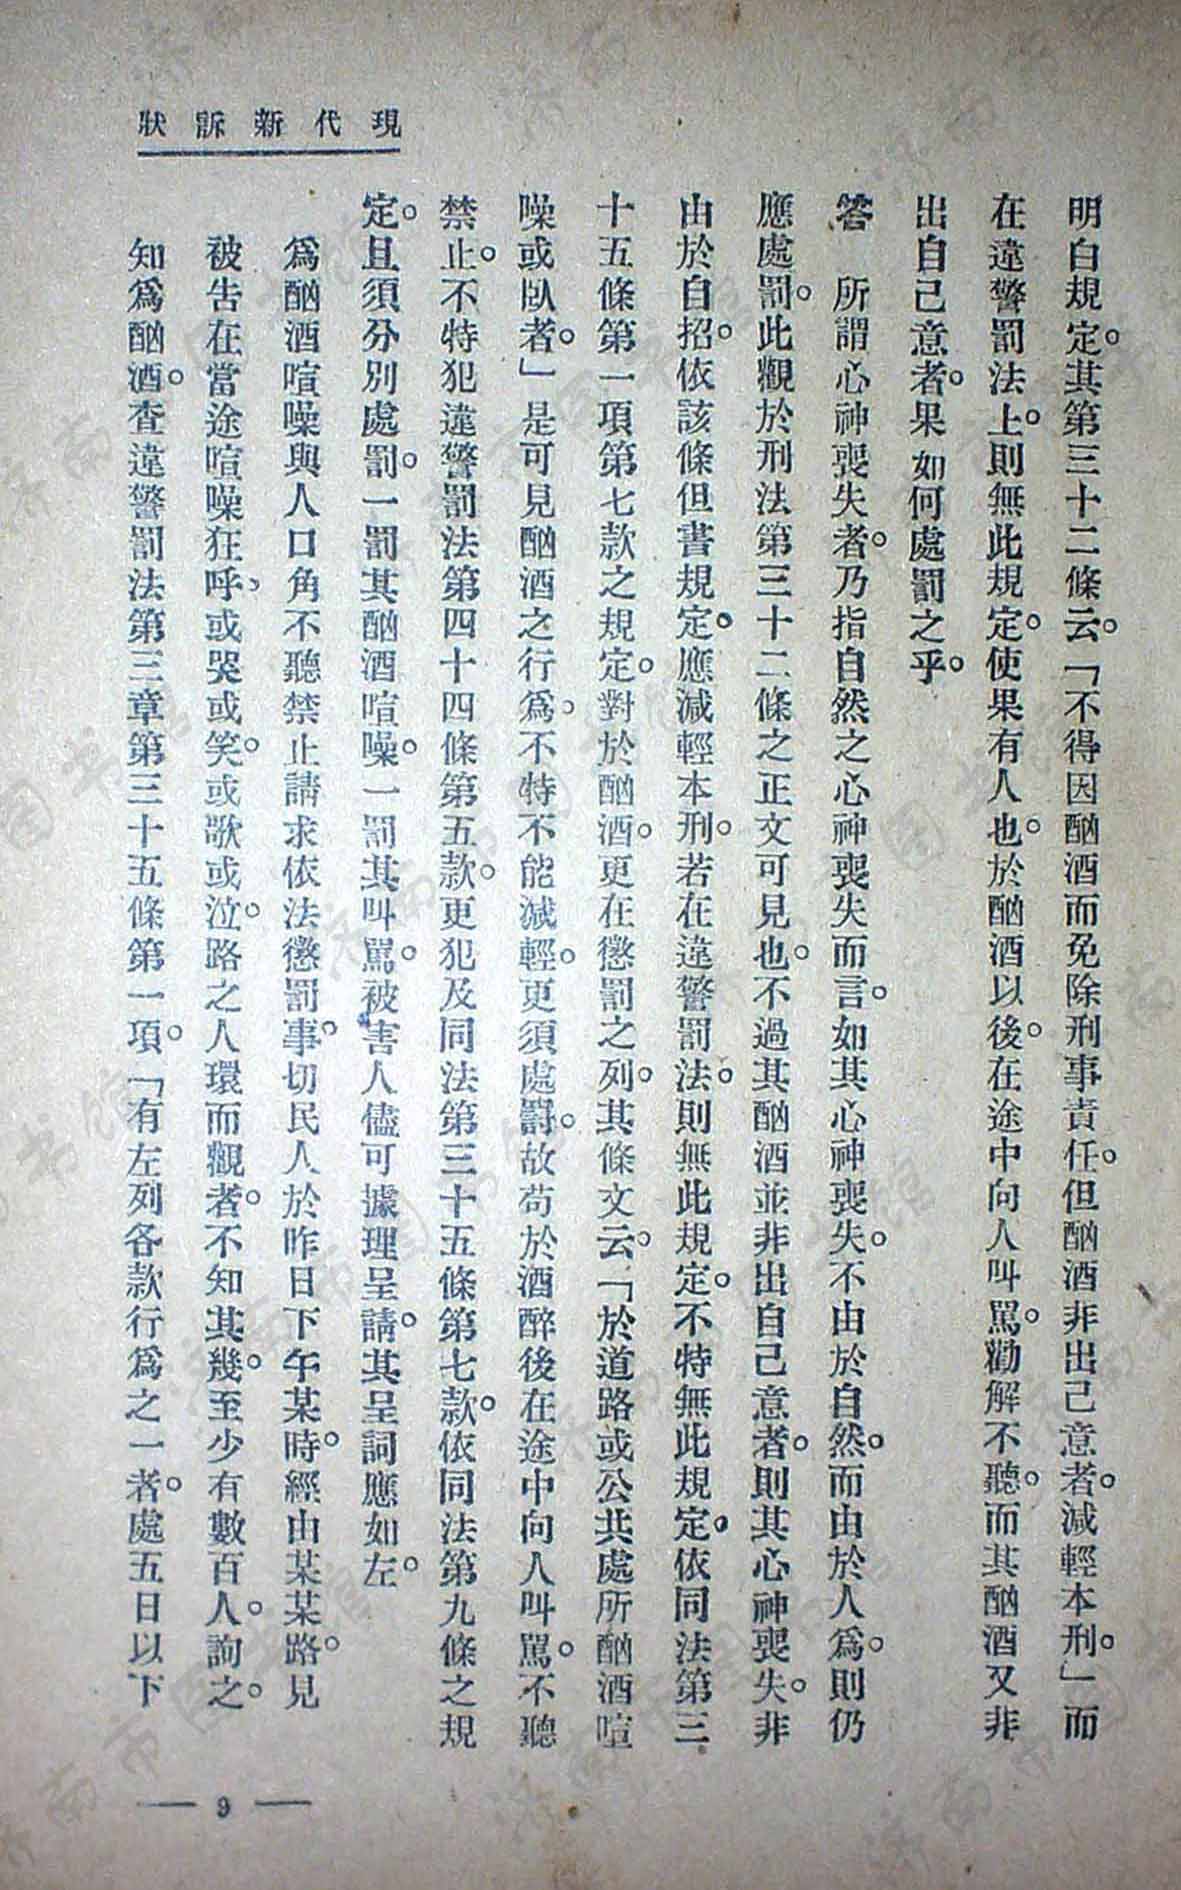 現代新訴狀
明白規定。其第三十二條云。「不得因酗酒而免除刑事責任。但酗酒非出己意者。減輕本刑。」而
在違警罰法上。則無此規定。使果有人也。於酗酒以後。在途中向人叫罵。勸解不聽。而其酗酒又非
出自己意者。果如何處罰之乎。
答　所謂心神喪失者。乃指自然之心神喪失而言。如其心神喪失。不由於自然。而由於人爲。則仍
應處罰。此觀於刑法第三十二條之正文可見也。不過其酗酒並非出自己意者。則其心神喪失。非
由於自招。依該條但書規定。應減輕本刑。若在違警罰法。則無此規定。不特無此規定。依同法第三
十五條第一項第七款之規定。對於酗酒。更在懲罰之列。其條文云。「於道路或公共處所酗酒喧
噪或臥者。」是可見酗酒之行爲。不特不能減輕。更須處罰。故苟於酒醉後在途中向人叫罵。不聽
禁止。不特犯違警罰法第四十四條第五款。更犯及同法第三十五條第七款。依同法第九條之規
定。且須分別處罰。一罰其酗酒喧噪。一罰其叫罵。被害人儘可據理呈請。其呈詞應如左。
爲酗酒喧噪與人口角不聽禁止請求依法懲罰事。切民人於昨日下午某時。經由某某路。見
被告在當途喧噪狂呼、或哭或笑。或歌或泣。路之人環而觀者。不知其幾。至少有數百人。詢之。
知爲酗酒。查違警罰法第三章第三十五條第一項。「有左列各款行爲之一者。處五日以下
— 9 —
济南市图书馆